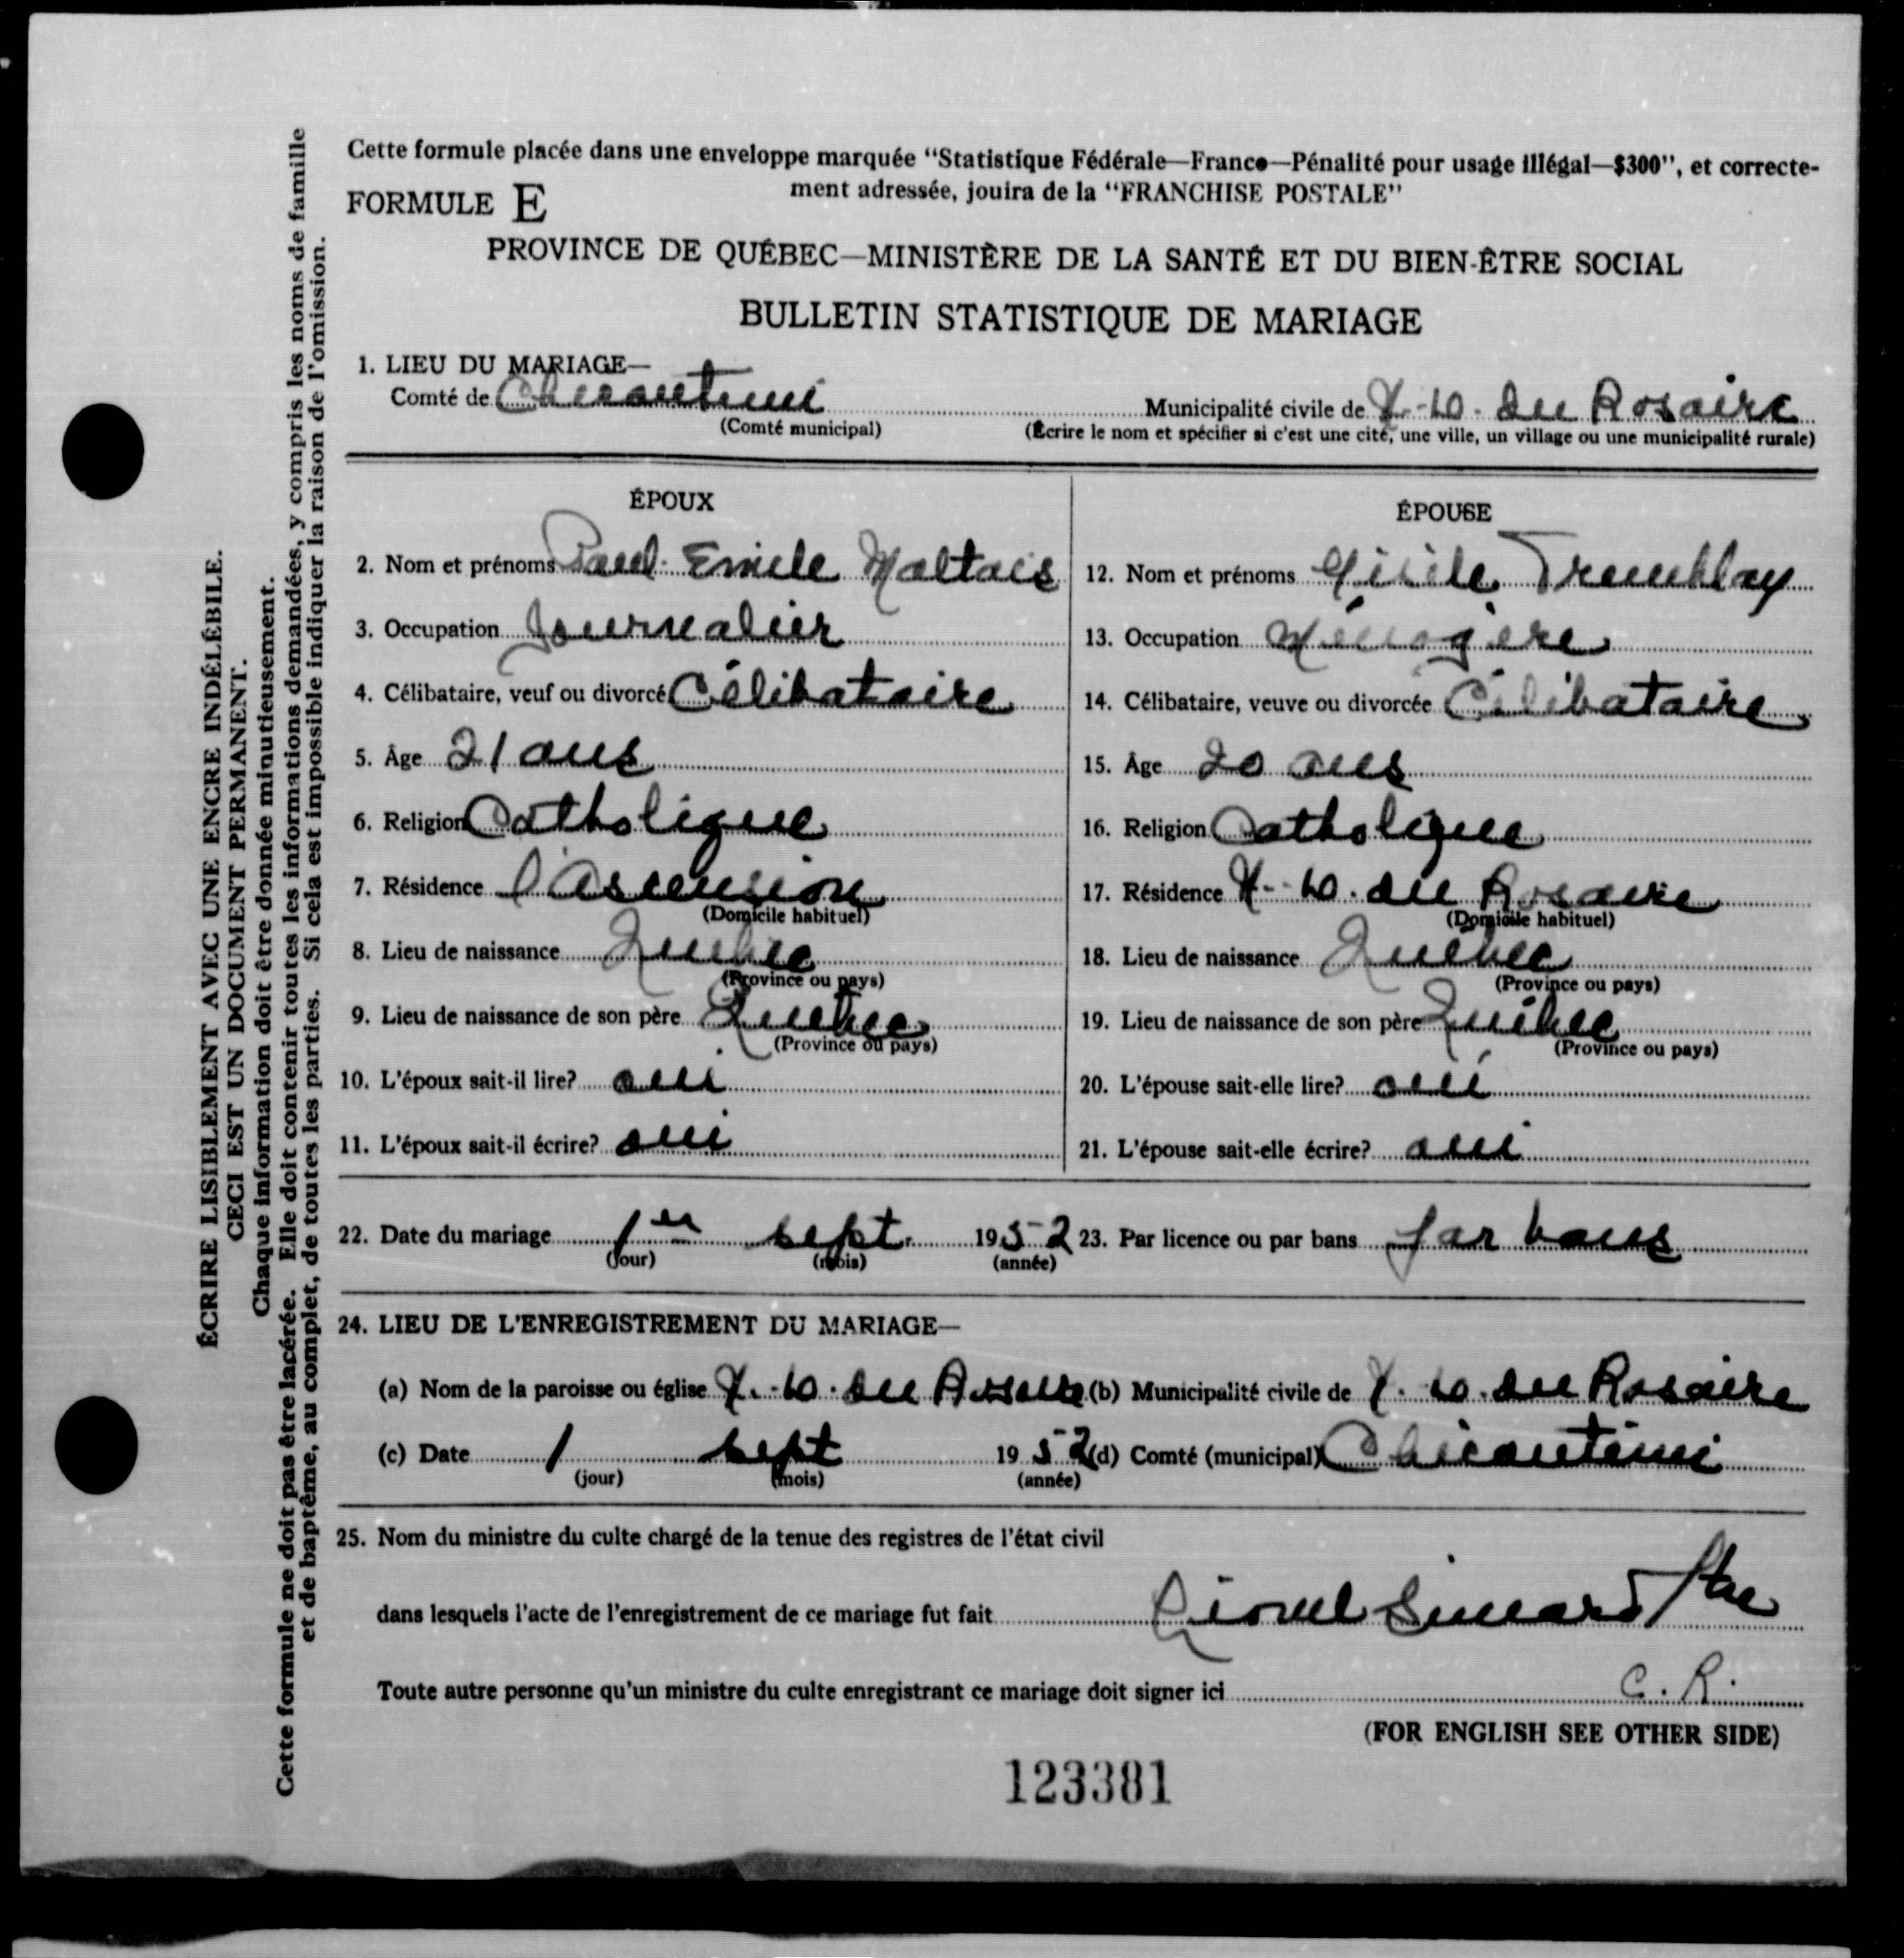 Cette formule placée dans une enveloppe marquée "Statistique Fédérale—France—Pénalité pour usage illégal—$300", et correcte-
ment adressée, jouira de la "FRANCHISE POSTALE"
FORMULE E
PROVINCE DE QUÉBEC—MINISTÈRE DE LA SANTÉ ET DU BIEN-ÊTRE SOCIAL
BULLETIN STATISTIQUE DE MARIAGE
1. LIEU DU MARIAGE—
Comté de Chicoutimi Municipalité civile de N.-D. du Rosaire
(Comté municipal) (Écrire le nom et spécifier si c'est une cité, une ville, un village ou une municipalité rurale)
ÉPOUX
2. Nom et prénoms Paul-Emile Maltais
3. Occupation Journalier
4. Célibataire, veuf ou divorcé Célibataire
5. Âge 21 ans
6. Religion Catholique
7. Résidence l'Ascension
(Domicile habituel)
8. Lieu de naissance Québec
(Province ou pays)
9. Lieu de naissance de son père Québec
(Province ou pays)
10. L'époux sait-il lire? oui
11. L'époux sait-il écrire? oui
ÉPOUSE
12. Nom et prénoms Gisèle Tremblay
13. Occupation Ménagère
14. Célibataire, veuve ou divorcée Célibataire
15. Âge 20 ans
16. Religion Catholique
17. Résidence N.-D. du Rosaire
(Domicile habituel)
18. Lieu de naissance Québec
(Province ou pays)
19. Lieu de naissance de son père Québec
(Province ou pays)
20. L'épouse sait-elle lire? oui
21. L'épouse sait-elle écrire? oui
22. Date du mariage 1er sept. 1952 23. Par licence ou par bans par bans
(jour) (mois) (année)
24. LIEU DE L'ENREGISTREMENT DU MARIAGE—
(a) Nom de la paroisse ou église N.-D. du Rosaire (b) Municipalité civile de N.-D. du Rosaire
(c) Date 1 sept 1952 (d) Comté (municipal) Chicoutimi
(jour) (mois) (année)
25. Nom du ministre du culte chargé de la tenue des registres de l'état civil
dans lesquels l'acte de l'enregistrement de ce mariage fut fait Lionel Simard Ptre
Toute autre personne qu'un ministre du culte enregistrant ce mariage doit signer ici C. R.
(FOR ENGLISH SEE OTHER SIDE)
123381
ÉCRIRE LISIBLEMENT AVEC UNE ENCRE INDÉLÉBILE.
CECI EST UN DOCUMENT PERMANENT.
Chaque information doit être donnée minutieusement.
Cette formule ne doit pas être lacérée. Elle doit contenir toutes les informations demandées, y compris les noms de famille
et de baptême, au complet, de toutes les parties. Si cela est impossible indiquer la raison de l'omission.